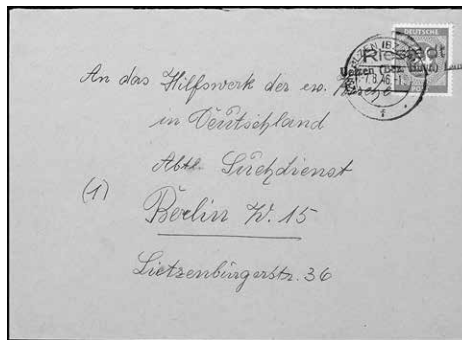 DEUTSCHE
Riestedt
Uelzen (Bz. Hann) Land
7.8.46
An das Hilfswerk der ev. Kirche
in Deutschland
Abtl. Suchdienst
(1)
Berlin W. 15
Lietzenburgerstr. 36